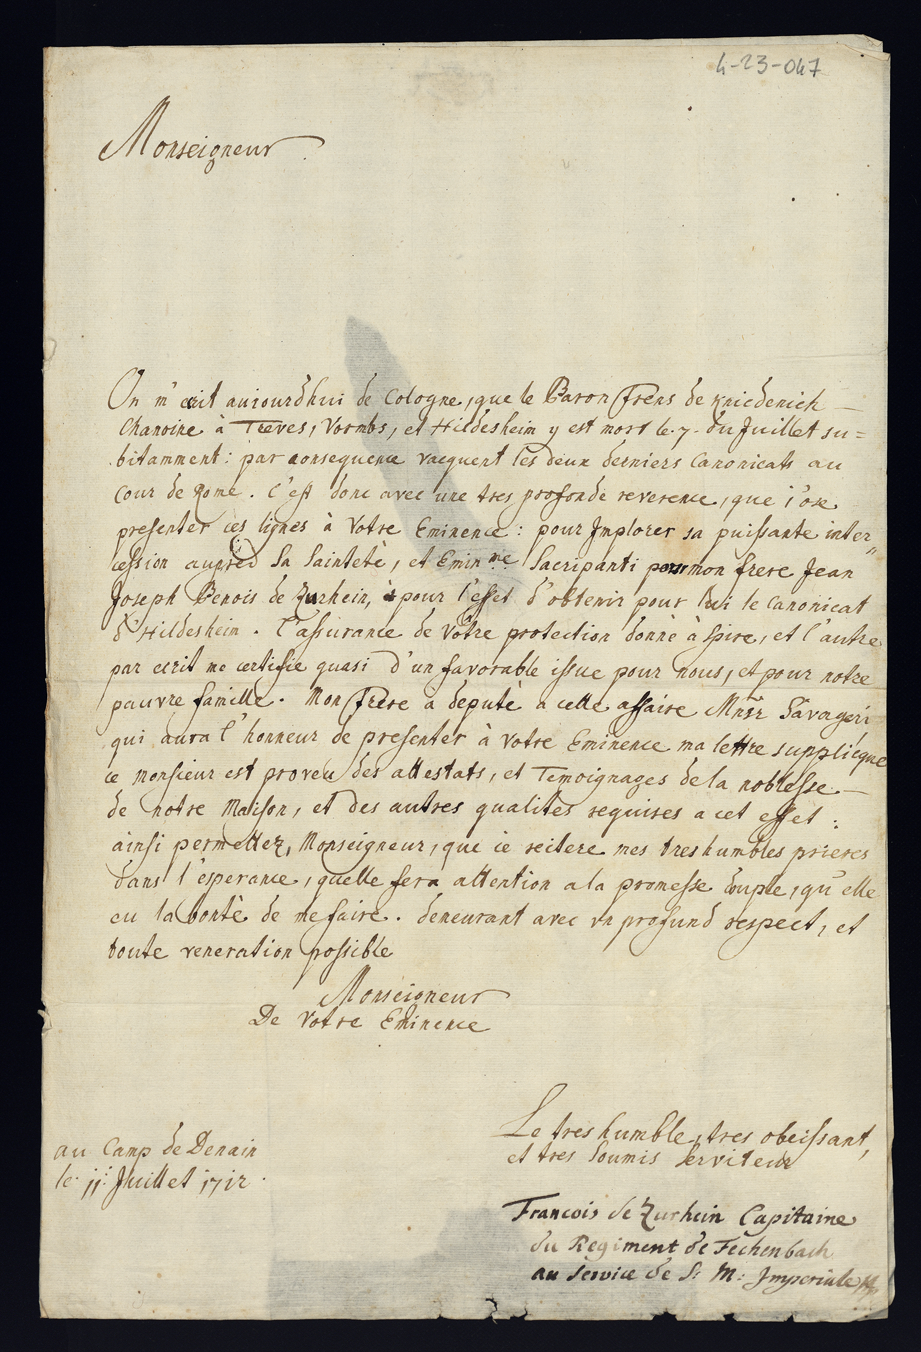 4-23-047
Monseigneur
On m'ecrit aujourdhui de Cologne, que le Baron Frens de
Chanoine à Treves, Vormbs, et Hildesheim y est mort le 7. du Juillet su=
bitamment: par consequence vacquent les deux derniers Canonicats au
Cour de Rome. C'est donc avec une tres profonde reverence, que i'ose
presenter ces lignes à Votre Eminence: pour Jmplorer sa puissante inter"
cession aupred Sa Saintetè, et Emin:me Sacripanti pour mon frere Jean
Joseph Benois de Zurhein, à pour l'effet d'obtenir pour lui le canonicat
d'Hildesheim. l'assurance de Vôtre protection donnè à Spire, et l'autre
par ecrit me certifie quasi d'un favorable issue pour nous, et pour notre
pauvre famille. Mon Frere a deputè a cette affaire Mnsr
qui aura l'honneur de presenter à Votre Eminence ma lettre supplicque
ce Monsieur est proveu des attestats, et Temoignages de la noblesse
de notre Maison, et des autres qualites requises a cet effet:
ainsi permettez, Monseigneur, que ie reitere mes tres humbles prieres
dans l'esperance, quelle fera attention a la promesse, qu'elle
eu la bontè de me faire. demeurant avec un profund respect, et
toute veneration possible
Monseigneur
De Votre Eminence
Le tres humble, tres obeissant,
et tres Soumis Serviteur
au Camp de Denain
le 11: Juillet 1712.
Francois de Zurhein Capitaine
du Regiment de Fechenbach
au Service de S: M: Jmperiale